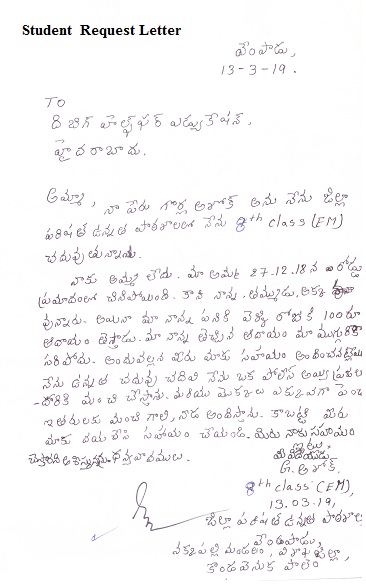 Student Request Letter
వెంపాడు,
13-3-19.
TO
ది బిగ్ హెల్ప్ ఫర్ ఎడ్యుకేషన్,
హైదరాబాదు.
అమ్మా, నా పేరు గొర్ల అశోక్ అను నేను జిల్లా
పరిషత్ ఉన్నత పాఠశాలలో నేను 8th class (EM)
చదువుతున్నాను.
నాకు అమ్మ లేదు. మా అమ్మ 27.12.18న రోడ్డు
ప్రమాదంలో చనిపోయింది. కాని నాన్న, తమ్ముడు, అక్క
వున్నారు. అయినా మా నాన్న పనికి వెళ్ళి రోజుకి 100రూ
ఆదాయం తెస్తాడు. మా నాన్న తెచ్చిన ఆదాయం మా ముగ్గురికి
సరిపోదు. అందువల్లన మీరు మాకు సహాయం అందించినట్లైతే
నేను ఉన్నత చదువు చదివి నేను ఒక పోలీస్ అయ్యి ప్రజల
-దారికి మంచి చేస్తాను. మరియు మొక్కలు ఎక్కువగా పెంచి
ఇతరులకు మంచి గాలి, నీడ అందిస్తాను. కాబట్టి మీరు
మాకు దయచేసి సహాయం చేయండి. మీరు నాకు సహాయం
చేస్తారని ఆశిస్తున్నాను. ధన్యవాదములు.
ఇట్లు,
మీ విధేయుడు,
G. అశోక్.
8th class (EM),
13.03.19,
జిల్లా పరిషత్ ఉన్నత పాఠశాల
వెంపాడు,
నక్కపల్లి మండలం, విశాఖ జిల్లా,
కొండవెనుక పాలెం